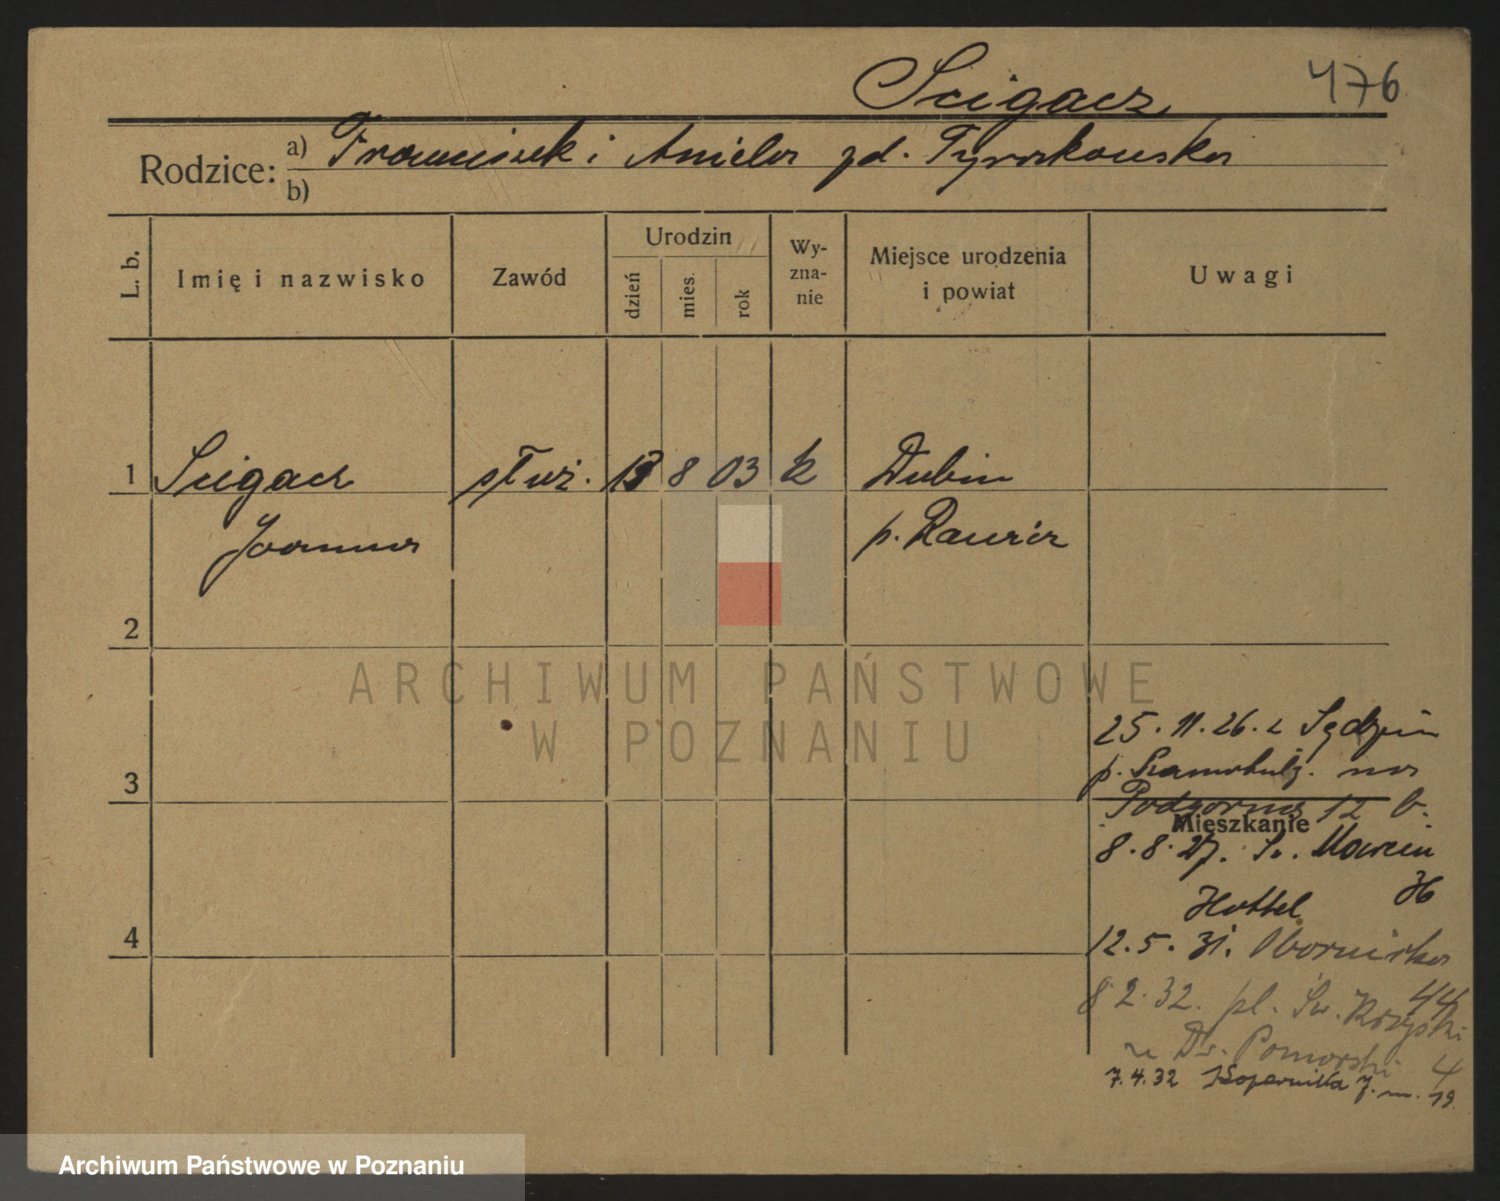 Scigacz 476
Rodzice: a) Franciszek i Aniela zd.
b)
L. b. Imię i nazwisko Zawód Urodzin Wyznanie Miejsce urodzenia i powiat Uwagi
dzień mies. rok
1 Scigacz służ. 13 8 03 k Dubin
Joanna p. Rawicz
2
ARCHIWUM PAŃSTWOWE
W POZNANIU
25.11.26. z Sędzin
3 p. Szamotuły. na
Podgórna 12 b.
Mieszkanie
8.8.27. Św. Marcin
36
Hottel
4 12.5.31. Obornicka
44
8.2.32. pl. Św. Krzyski
4
Dr. Pomorski
7.4.32 Kopernika 7. m. 19.
Archiwum Państwowe w Poznaniu